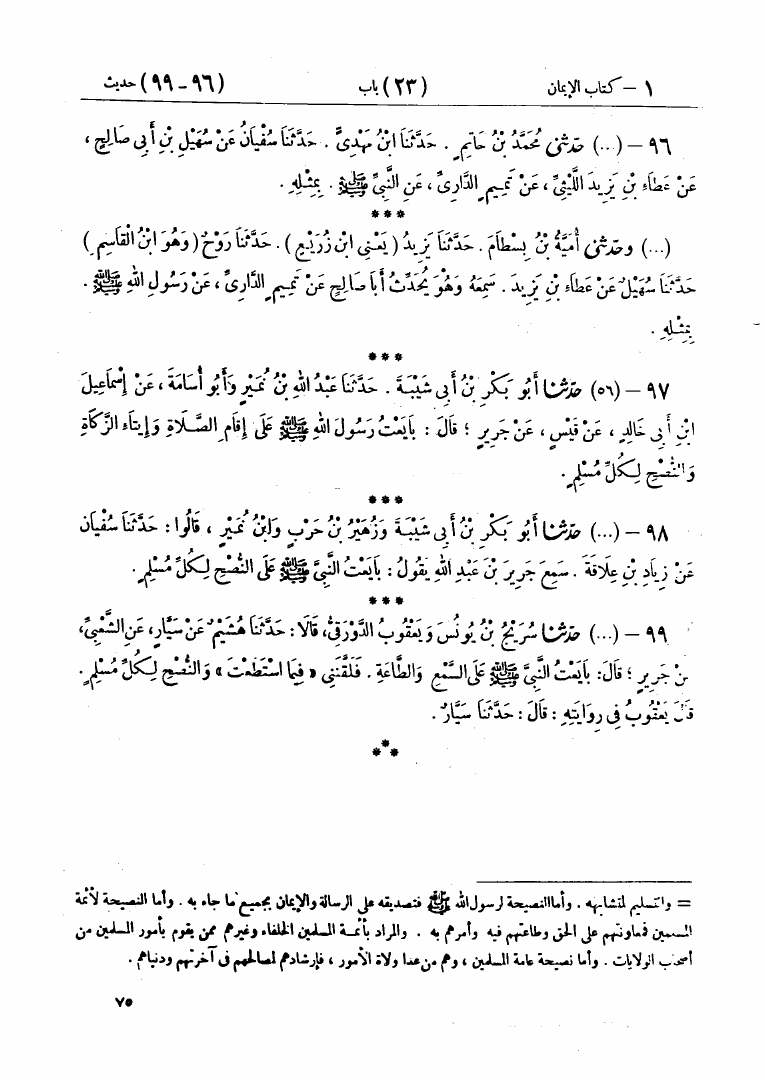 ١ – كتاب الإيمان (٢٣) باب (٩٦-٩٩) حديث
٩٦ – (...) حَدَّثَنِي مُحَمَّدُ بْنُ حَاتِمٍ . حَدَّثَنَا ابْنُ مَهْدِيٍّ . حَدَّثَنَا سُفْيَانُ عَنْ سُهَيْلِ بْنِ أَبِي صَالِحٍ ،
عَنْ عَطَاءِ بْنِ يَزِيدَ اللَّيْثِيِّ ، عَنْ تَمِيمٍ الدَّارِيِّ ، عَنِ النَّبِيِّ ﷺ . بِمِثْلِهِ .
***
(...) وَحَدَّثَنِي أُمَيَّةُ بْنُ بِسْطَامَ . حَدَّثَنَا يَزِيدُ ( يَعْنِي ابْنَ زُرَيْعٍ ) . حَدَّثَنَا رَوْحٌ ( وَهُوَ ابْنُ الْقَاسِمِ )
حَدَّثَنَا سُهَيْلٌ عَنْ عَطَاءِ بْنِ يَزِيدَ . سَمِعَهُ وَهُوَ يُحَدِّثُ أَبَا صَالِحٍ عَنْ تَمِيمٍ الدَّارِيِّ ، عَنْ رَسُولِ اللهِ ﷺ .
بِمِثْلِهِ .
***
٩٧ – (٥٦) حَدَّثَنَا أَبُو بَكْرِ بْنُ أَبِي شَيْبَةَ . حَدَّثَنَا عَبْدُ اللهِ بْنُ نُمَيْرٍ وَأَبُو أُسَامَةَ ، عَنْ إِسْمَاعِيلَ
ابْنِ أَبِي خَالِدٍ ، عَنْ قَيْسٍ ، عَنْ جَرِيرٍ ؛ قَالَ : بَايَعْتُ رَسُولَ اللهِ ﷺ عَلَى إِقَامِ الصَّلَاةِ وَإِيتَاءِ الزَّكَاةِ
وَالنُّصْحِ لِكُلِّ مُسْلِمٍ .
***
٩٨ – (...) حَدَّثَنَا أَبُو بَكْرِ بْنُ أَبِي شَيْبَةَ وَزُهَيْرُ بْنُ حَرْبٍ وَابْنُ نُمَيْرٍ ، قَالُوا : حَدَّثَنَا سُفْيَانُ
عَنْ زِيَادِ بْنِ عِلَاقَةَ . سَمِعَ جَرِيرَ بْنَ عَبْدِ اللهِ يَقُولُ : بَايَعْتُ النَّبِيَّ ﷺ عَلَى النُّصْحِ لِكُلِّ مُسْلِمٍ .
***
٩٩ – (...) حَدَّثَنَا سُرَيْجُ بْنُ يُونُسَ وَيَعْقُوبُ الدَّوْرَقِيُّ، قَالَا: حَدَّثَنَا هُشَيْمٌ عَنْ سَيَّارٍ، عَنِ الشَّعْبِيِّ،
عَنْ جَرِيرٍ ؛ قَالَ: بَايَعْتُ النَّبِيَّ ﷺ عَلَى السَّمْعِ وَالطَّاعَةِ . فَلَقَّنَنِي « فِيمَا اسْتَطَعْتَ » وَالنُّصْحِ لِكُلِّ مُسْلِمٍ .
قَالَ يَعْقُوبُ فِي رِوَايَتِهِ : قَالَ : حَدَّثَنَا سَيَّارٌ .
***
= والتسليم لمتشابهه . وأما النصيحة لرسول الله ﷺ فتصديقه على الرسالة والإيمان بجميع ما جاء به . وأما النصيحة لأئمة
المسلمين فمعاونتهم على الحق وطاعتهم فيه وأمرهم به . والمراد بأئمة المسلمين الخلفاء وغيرهم ممن يقوم بأمور المسلمين من
أصحاب الولايات . وأما نصيحة عامة المسلمين ، وهم من عدا ولاة الأمور ، فإرشادهم لمصالحهم في آخرتهم ودنياهم .
٧٥